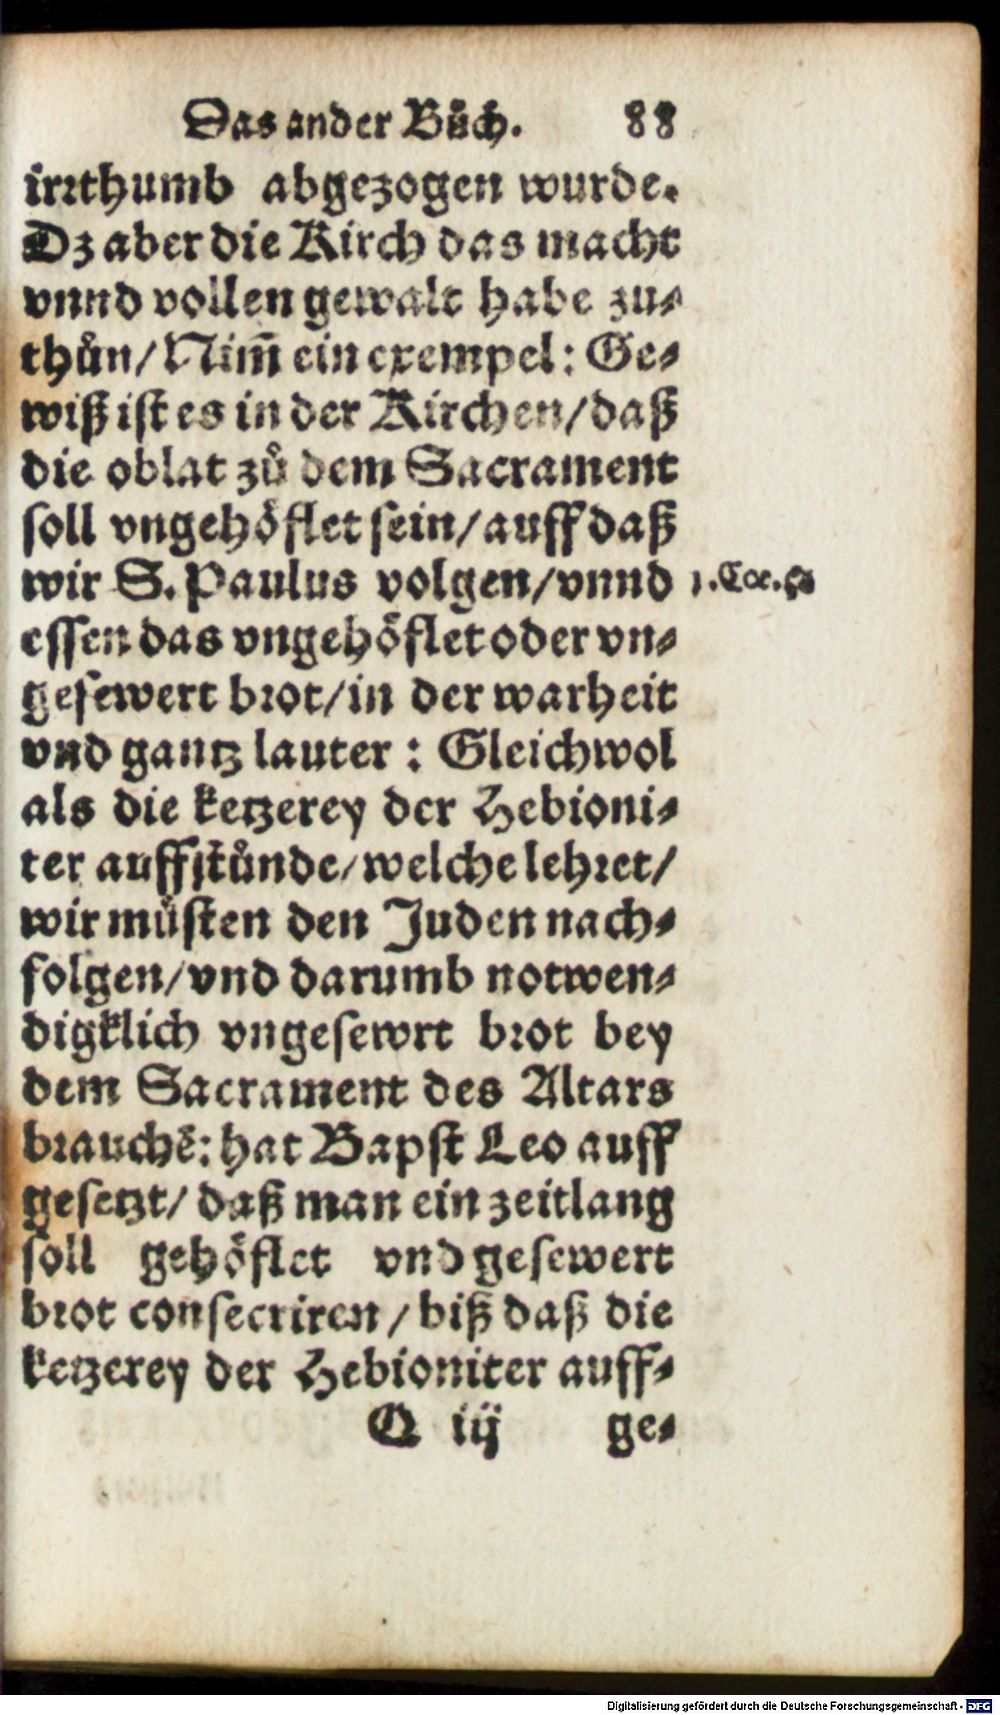 Das ander Bůch. 88
irꝛthumb abgezogen wurde.
Dz aber die Kirch das macht
vnnd vollen gewalt habe zu-
thůn/ Nim̃ ein exempel: Ge-
wiß ist es in der Kirchen/ daß
die oblat zů dem Sacrament
soll vngehöflet sein/ auff daß
wir S. Paulus volgen/ vnnd
1. Coꝛ. 5
essen das vngehöflet oder vn-
gesewert bꝛot/ in der warheit
vnd gantz lauter: Gleichwol
als die ketzerey der Hebioni-
ter auffstůnde/ welche lehꝛet/
wir müsten den Juden nach-
folgen/ vnd darumb notwen-
digklich vngesewrt bꝛot bey
dem Sacrament des Altars
bꝛauchẽ: hat Bapst Leo auff
gesetzt/ daß man ein zeitlang
soll gehöflet vnd gesewert
bꝛot consecriren/ biß daß die
ketzerey der Hebioniter auff-
Q iij ge-
Digitalisierung gefördert durch die Deutsche Forschungsgemeinschaft - DFG